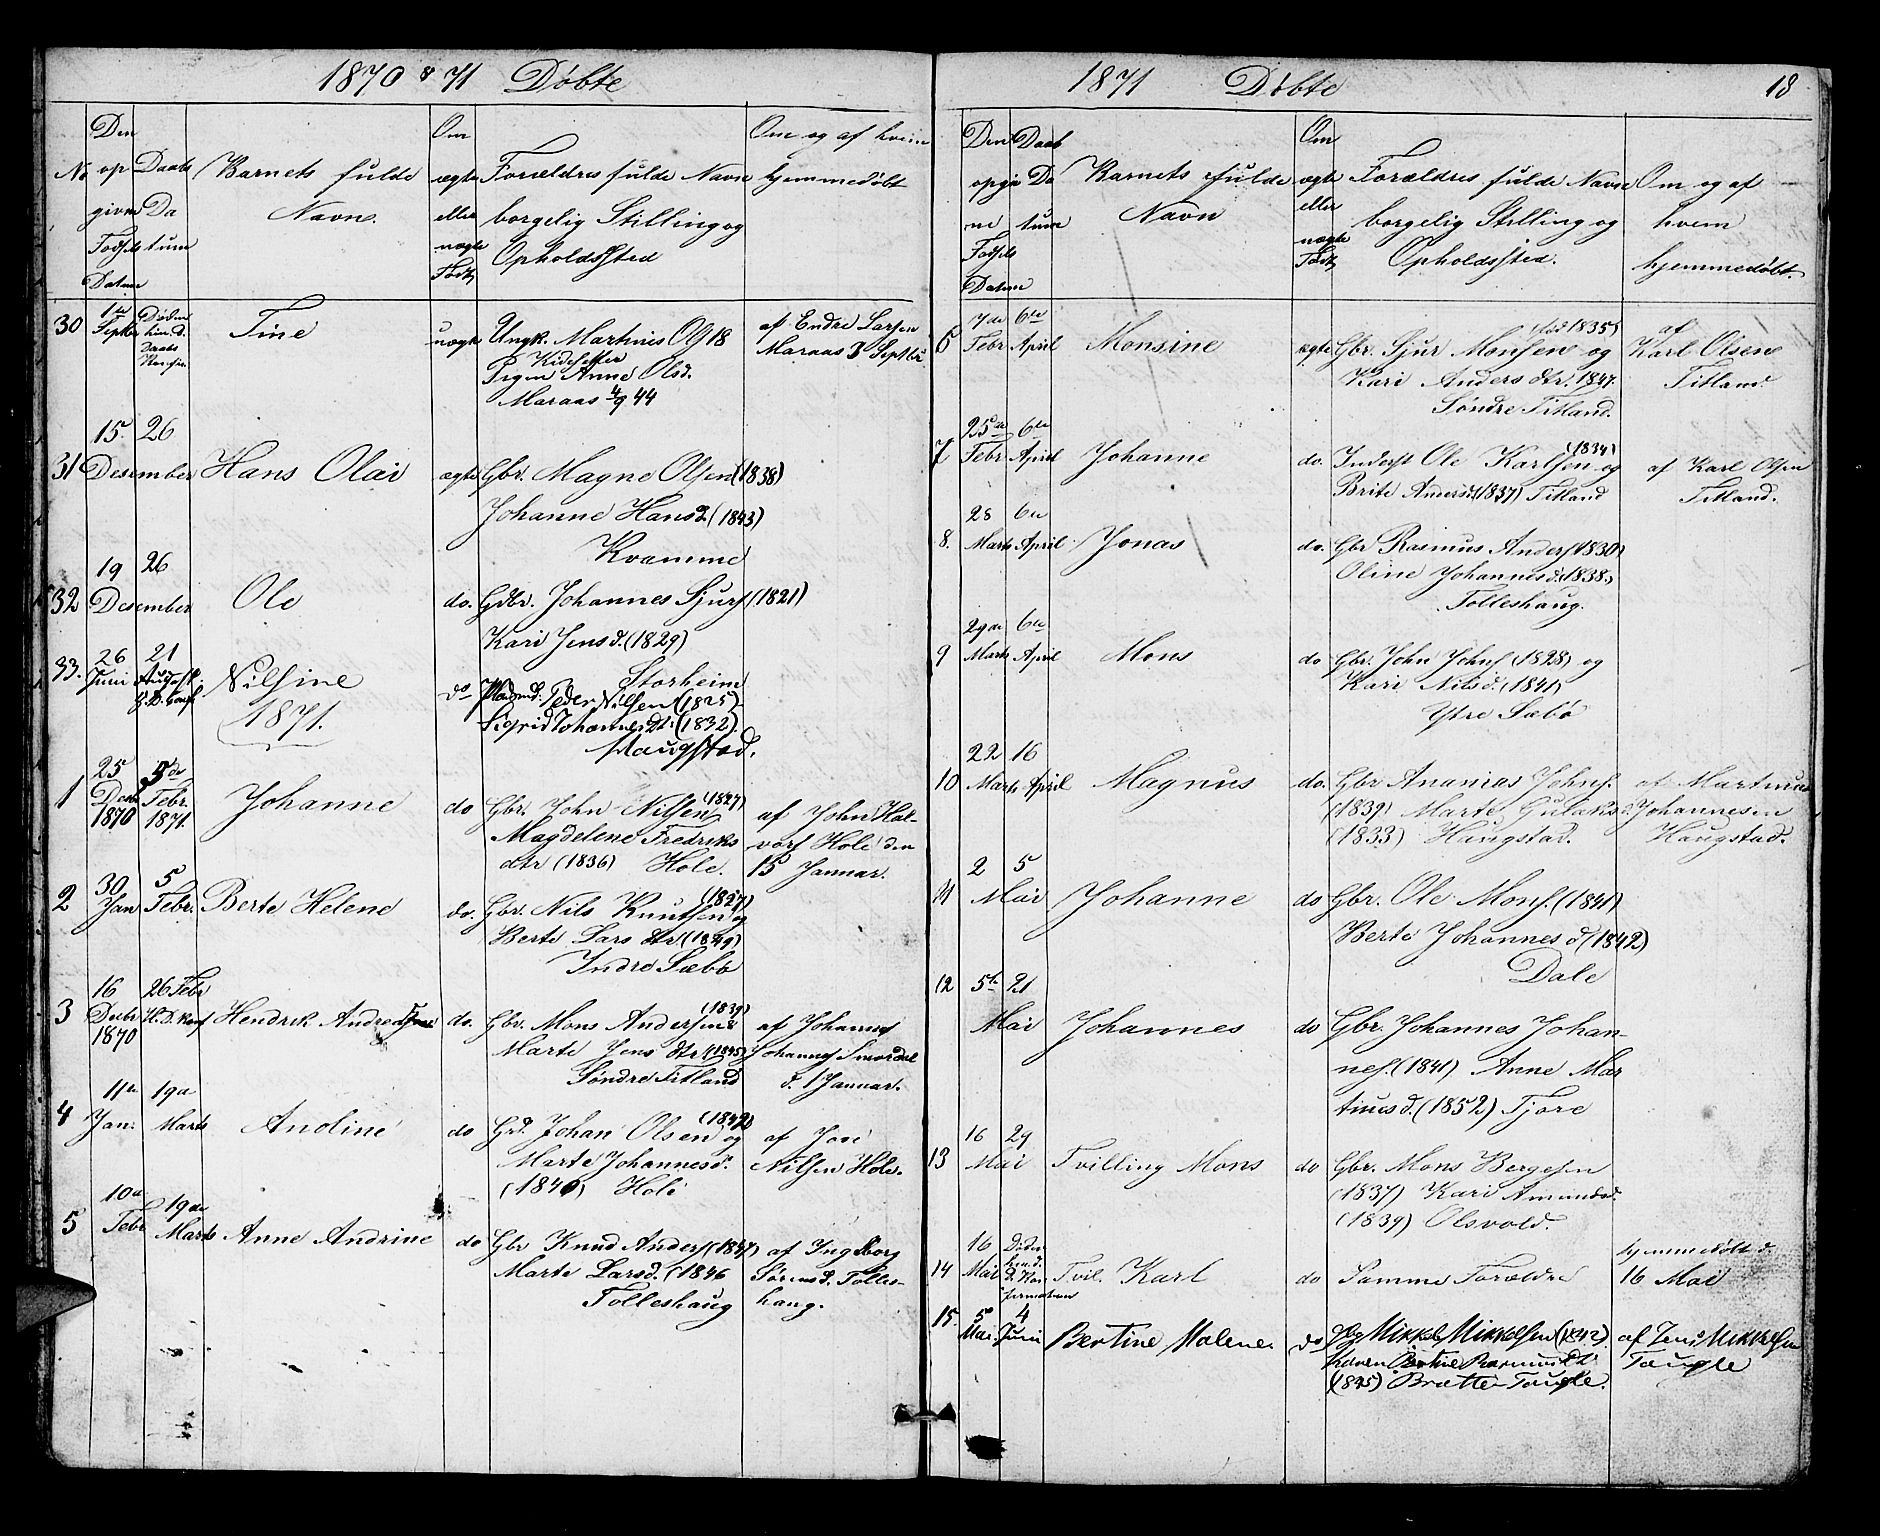 1870 & 71 Døbte
No
Den
op
givne
Fødsels
Datum
Daabs
Da
tum
Barnets fulde
Navn.
Om
ægte
eller
uægte
Født
Forældres fulde Navn
borgelig Stilling og
Opholdssted
Om og af hvem
hjemmedøbt
30 1ste Septbr
Tine
uægte
Ungk. Martinus O
Pigen Anne Olsd.
Maraas 4/9 44
af Endre Larsen
Maraas 3 Septbr
15 26
31 Desember Hans Olai
ægte Gbr. Magne Olsen (1838)
Johanne Hansd. (1843)
Kvamme
19 26
32 Desember Ole
do. Gdbr. Johannes Sjurs (1821)
Kari Jensd. (1829)
Storheim
33. 26 Juni 21 August
Nilsine
do Pladsmd: Peder Nilsen (1825)
Sigrid Johannesdt: (1832).
Haugstad.
1871.
1 25 Desbr 1870 5de Febr. 1871.
Johanne
do Gbr. John Nilsen (1827)
Magdelene Fredriks
dtr (1836) Hole.
af John Hal-
vors Hole den
15 Januar.
2 30 Jan 5 Febr.
Berte Helene
do. Gbr. Nils Knutsen (1827) og
Berte Lars dtr. (1849)
Indre Sæbø
3 16 Desbr 1870 26 Febr H. D. konf
Hendrik Andreas
do. Gbr. Mons Andersen (1839) &
Marte Jens dtr (1845)
Søndre Titland
af Johannes
Johannes Smørdal
d. 1 Januar.
4 11te Jan. 19de Marts
Anoline
do Gbr. Johan Olsen (1842) og
Marte Johannesd.
(1840) Hole
af Joe
Nilsen Hole.
5 10de Febr 19de Marts
Anne Andrine
do Gbr Knud Anders (1847)
Marte Larsd. (1846
Tolleshaug
af Ingeborg
Sørensd. Tolles-
haug.
1871 Døbte 18
Den
opgiv
ne
Fødsels
Datum
Daab
Da
tum
Barnets fulde
Navn
Om
ægte
eller
uægte
Født
Forældres fulde Navn
borgelig Stilling og
Opholdssted.
Om og af
hvem
hjemmedøbt.
6 7de Febr 6te April
Monsine
ægte Gbr. Sjur Monsen (fød 1835) og
Kari Anders dtr. 1847.
Søndre Titland.
af
Karl Olsen
Titland.
7 25de Febr 6te April
Johanne
do. Inderst Ole Karlsen (1834) og
Brite Andersd. (1837) Titland
af Karl Olsen
Titland.
8. 28 Marts 6te April
Jonas
do. Gbr Rasmus Anders (1830)
Oline Johannesd. (1838.)
Tolleshaug.
9 29de Marts 6te April
Mons
do Gbr. John Johns (1828) og
Kari Nilsd. (1841)
Ytre Sæbø
10 22 Marts 16 April
Magnus
do. Gbr Ananias Johns.
(1839) Marte Gulaksd.
(1833) Haugstad.
af Martinus
Johannesen
Haugstad.
11 2 5 Mai
Johanne
do Gbr. Ole Mons. (1841)
Berte Johannes d (1842)
Dale
12 5te 21 Mai
Johannes
do Gbr. Johannes Johan-
nes. (1841) Anne Mar
tinus d. (1852) Fjøre
13 16 29 Mai
Tvilling Mons
do Gbr. Mons Bergesen
(1837) Kari Amundsd.
(1839) Olsvold.
14 16 Mai
Tvil. Karl
do Samme Forældre
hjemmedøbt d.
16 Mai
15. 5 Mai 4 Juni
Bertine Malene
do Gbg Mikkel Mikkelsen (1842).
Bertine Rasmusdt:
(1845) Brætte-Taugle.
af Jens Mikkelsen
Taugle